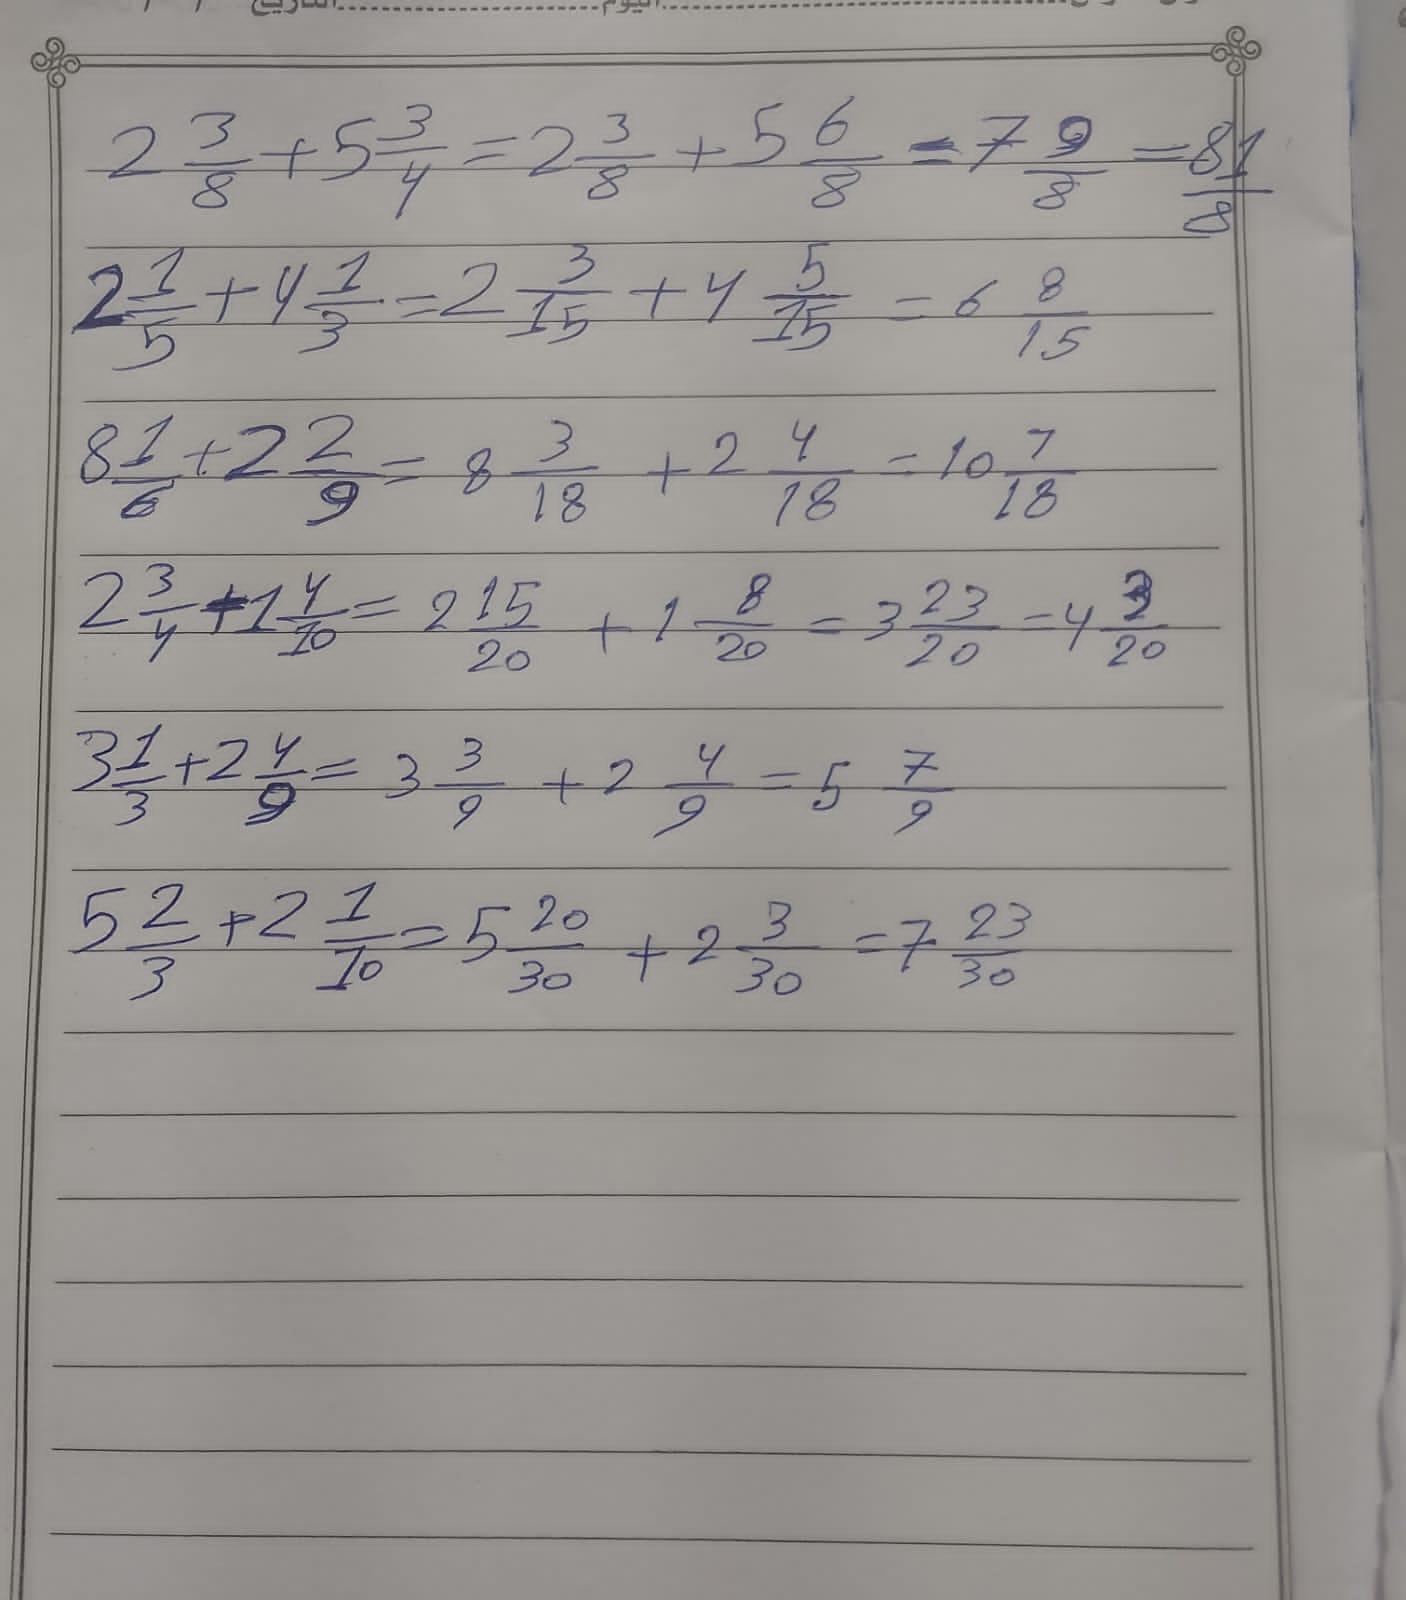 التاريخ / / اليوم
2 3/8 + 5 3/4 = 2 3/8 + 5 6/8 = 7 9/8 = 81/8
2 1/5 + 4 1/3 = 2 3/15 + 4 5/15 = 6 8/15
8 1/6 + 2 2/9 = 8 3/18 + 2 4/18 = 10 7/18
2 3/4 + 1 4/10 = 2 15/20 + 1 8/20 = 3 23/20 = 4 3/20
3 1/3 + 2 4/9 = 3 3/9 + 2 4/9 = 5 7/9
5 2/3 + 2 1/10 = 5 20/30 + 2 3/30 = 7 23/30